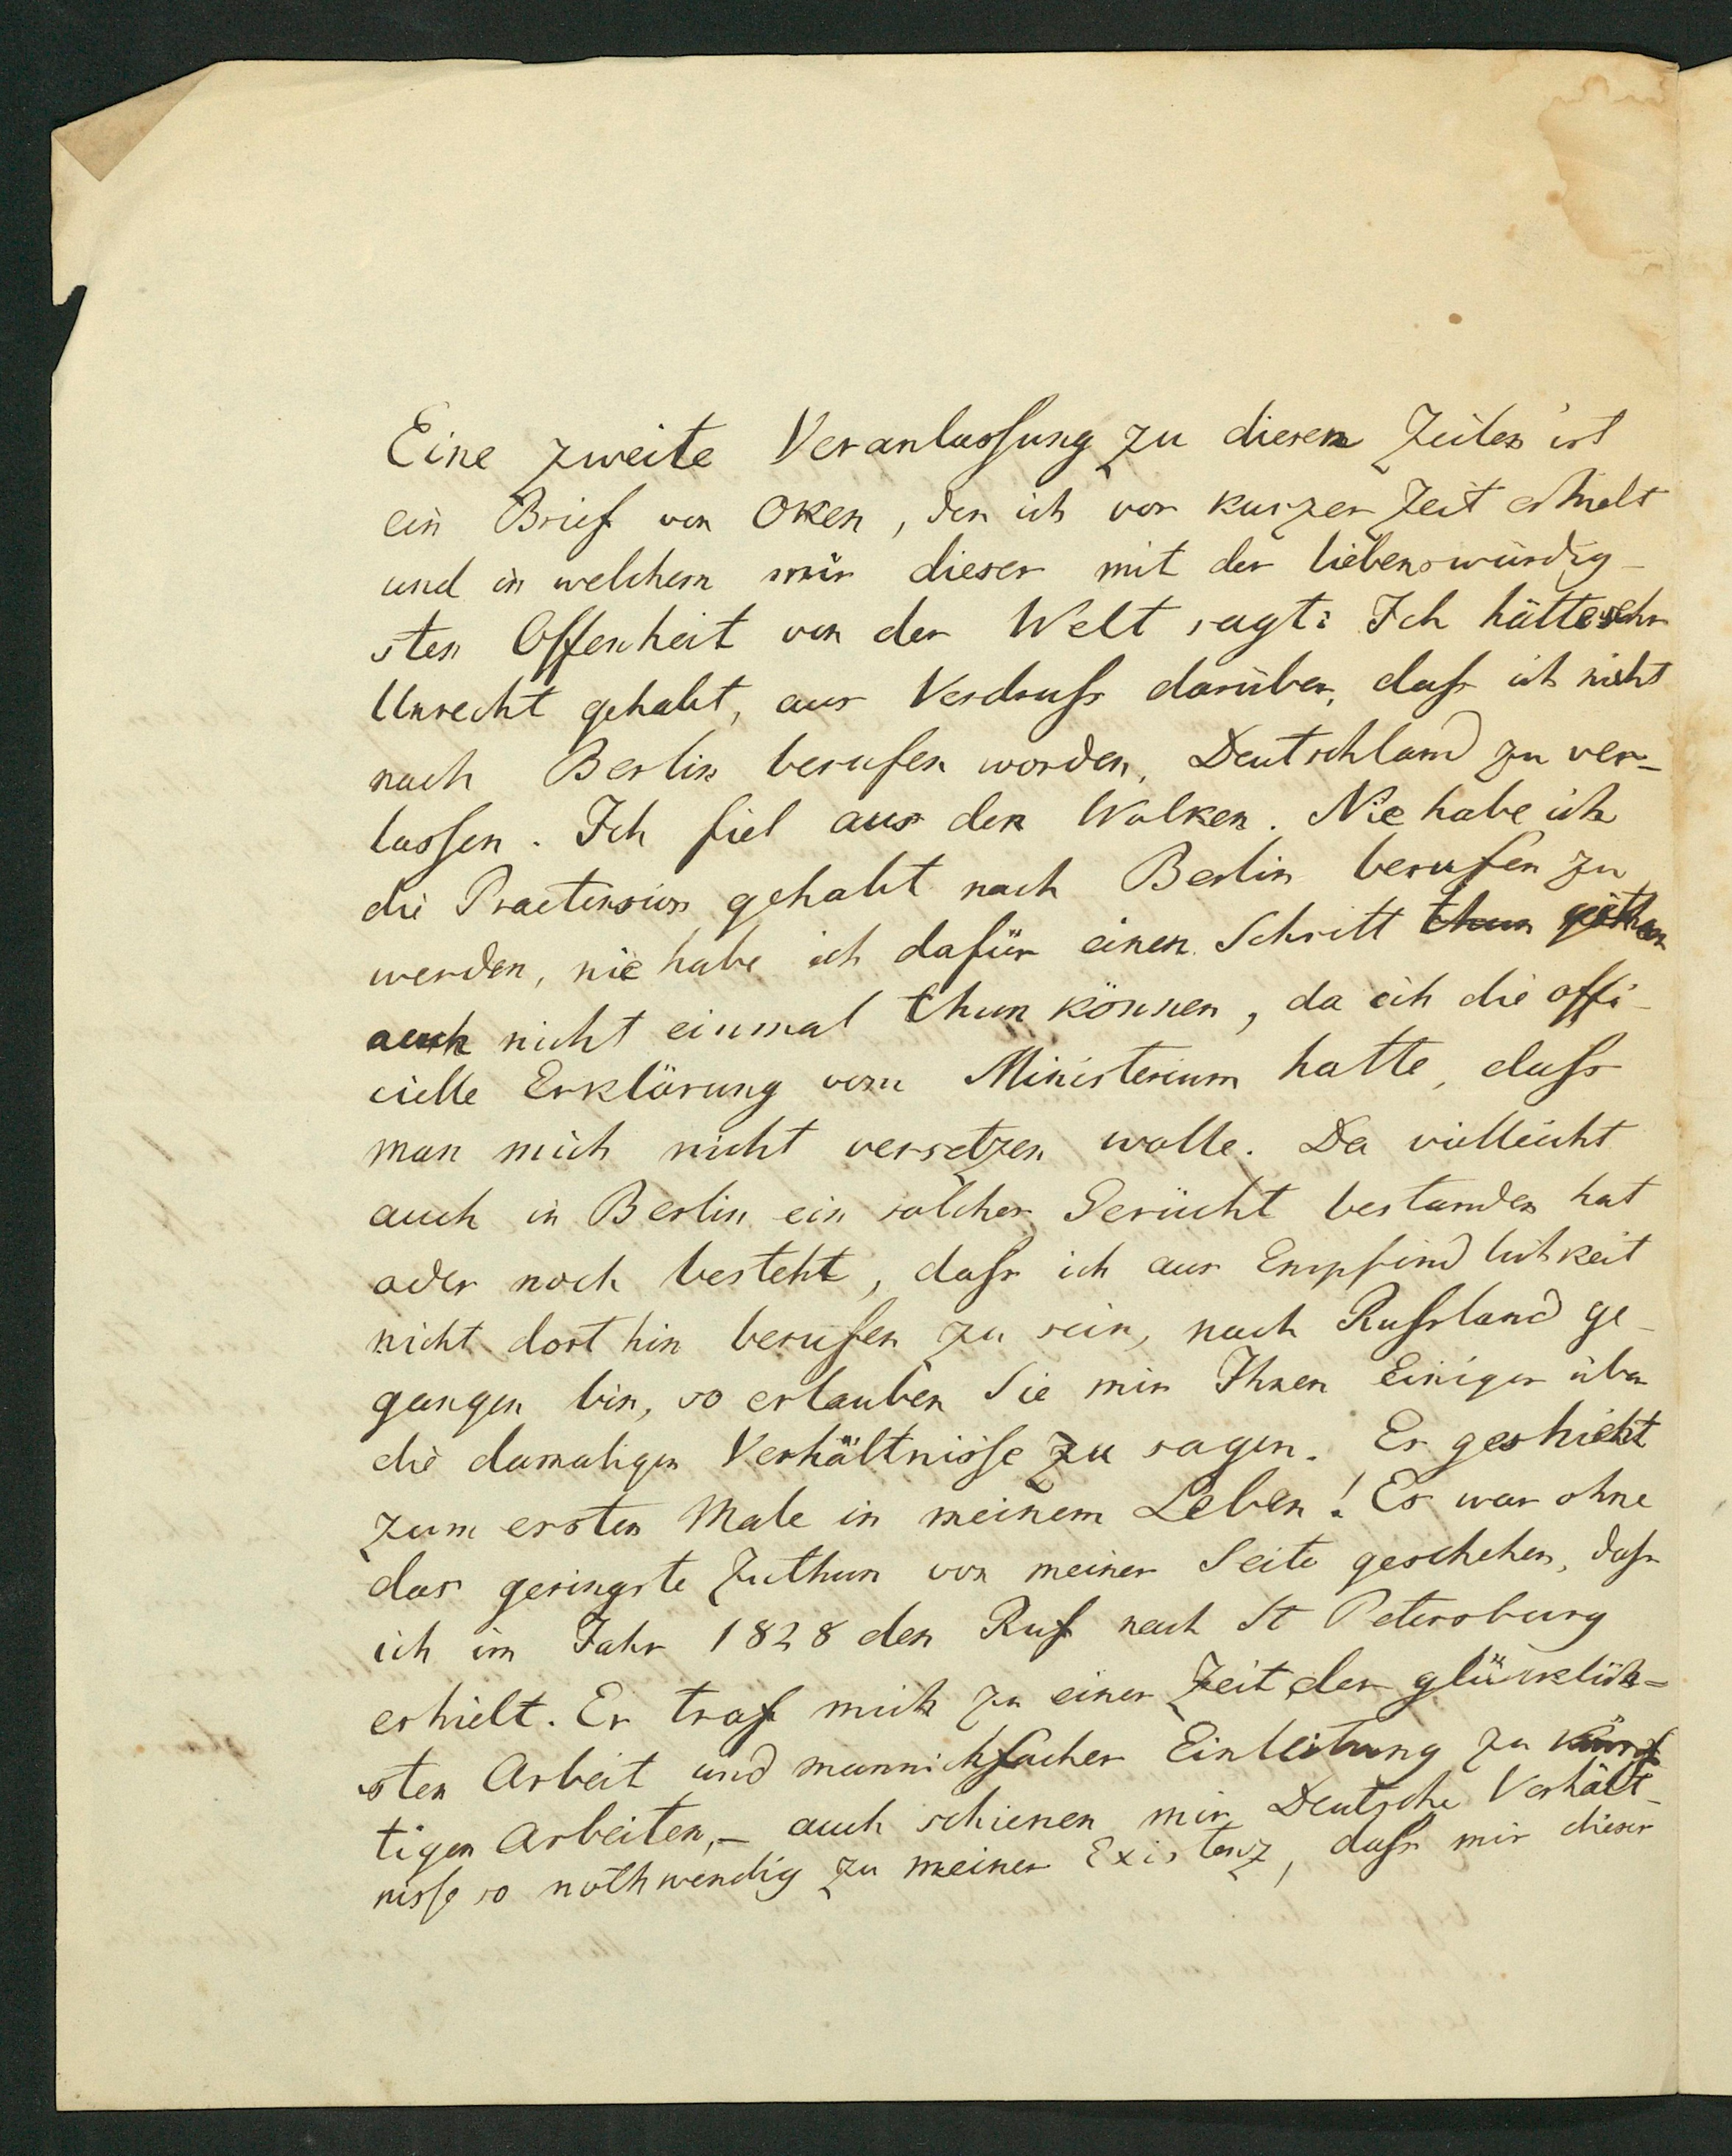 Eine zweite Veranlassung zu diesen Zeilen ist
ein Brief von Oken, den ich vor kurzer Zeit erhielt
und in welchem mir dieser mit der liebenswürdig-
sten Offenheit von der Welt sagt: Ich hätte sehr
Unrecht gehabt, aus Verdruss darüber, dass ich nicht
nach Berlin berufen worden, Deutschland zu ver-
lassen. Ich fiel aus den Wolken. Nie habe ich
die Praetension gehabt nach Berlin berufen zu
werden, nie habe ich dafür einen Schritt thun gethan
auch nicht einmal thun können, da ich die offi-
cielle Erklärung vom Ministerium hatte, dass
man mich nicht versetzen wolle. Da vielleicht
auch in Berlin ein solches Gerücht bestanden hat
oder noch besteht, dass ich aus Empfindlichkeit
nicht dorthin berufen zu sein, nach Russland ge-
gangen bin, so erlauben Sie mir Ihnen Einiges über
die damaligen Verhältnisse zu sagen. Es geschieht
zum ersten Male in meinem Leben! Es war ohne
das geringste Zuthun von meiner Seite geschehen, dass
ich im Jahr 1828 den Ruf nach St Petersburg
erhielt. Er traf mich zu einer Zeit der glücklich-
sten Arbeit und mannichfacher Einleitung zu künf
tigen Arbeiten, – auch schienen mir Deutsche Verhält-
nisse so nothwendig zu meiner Existenz, dass mir dieser